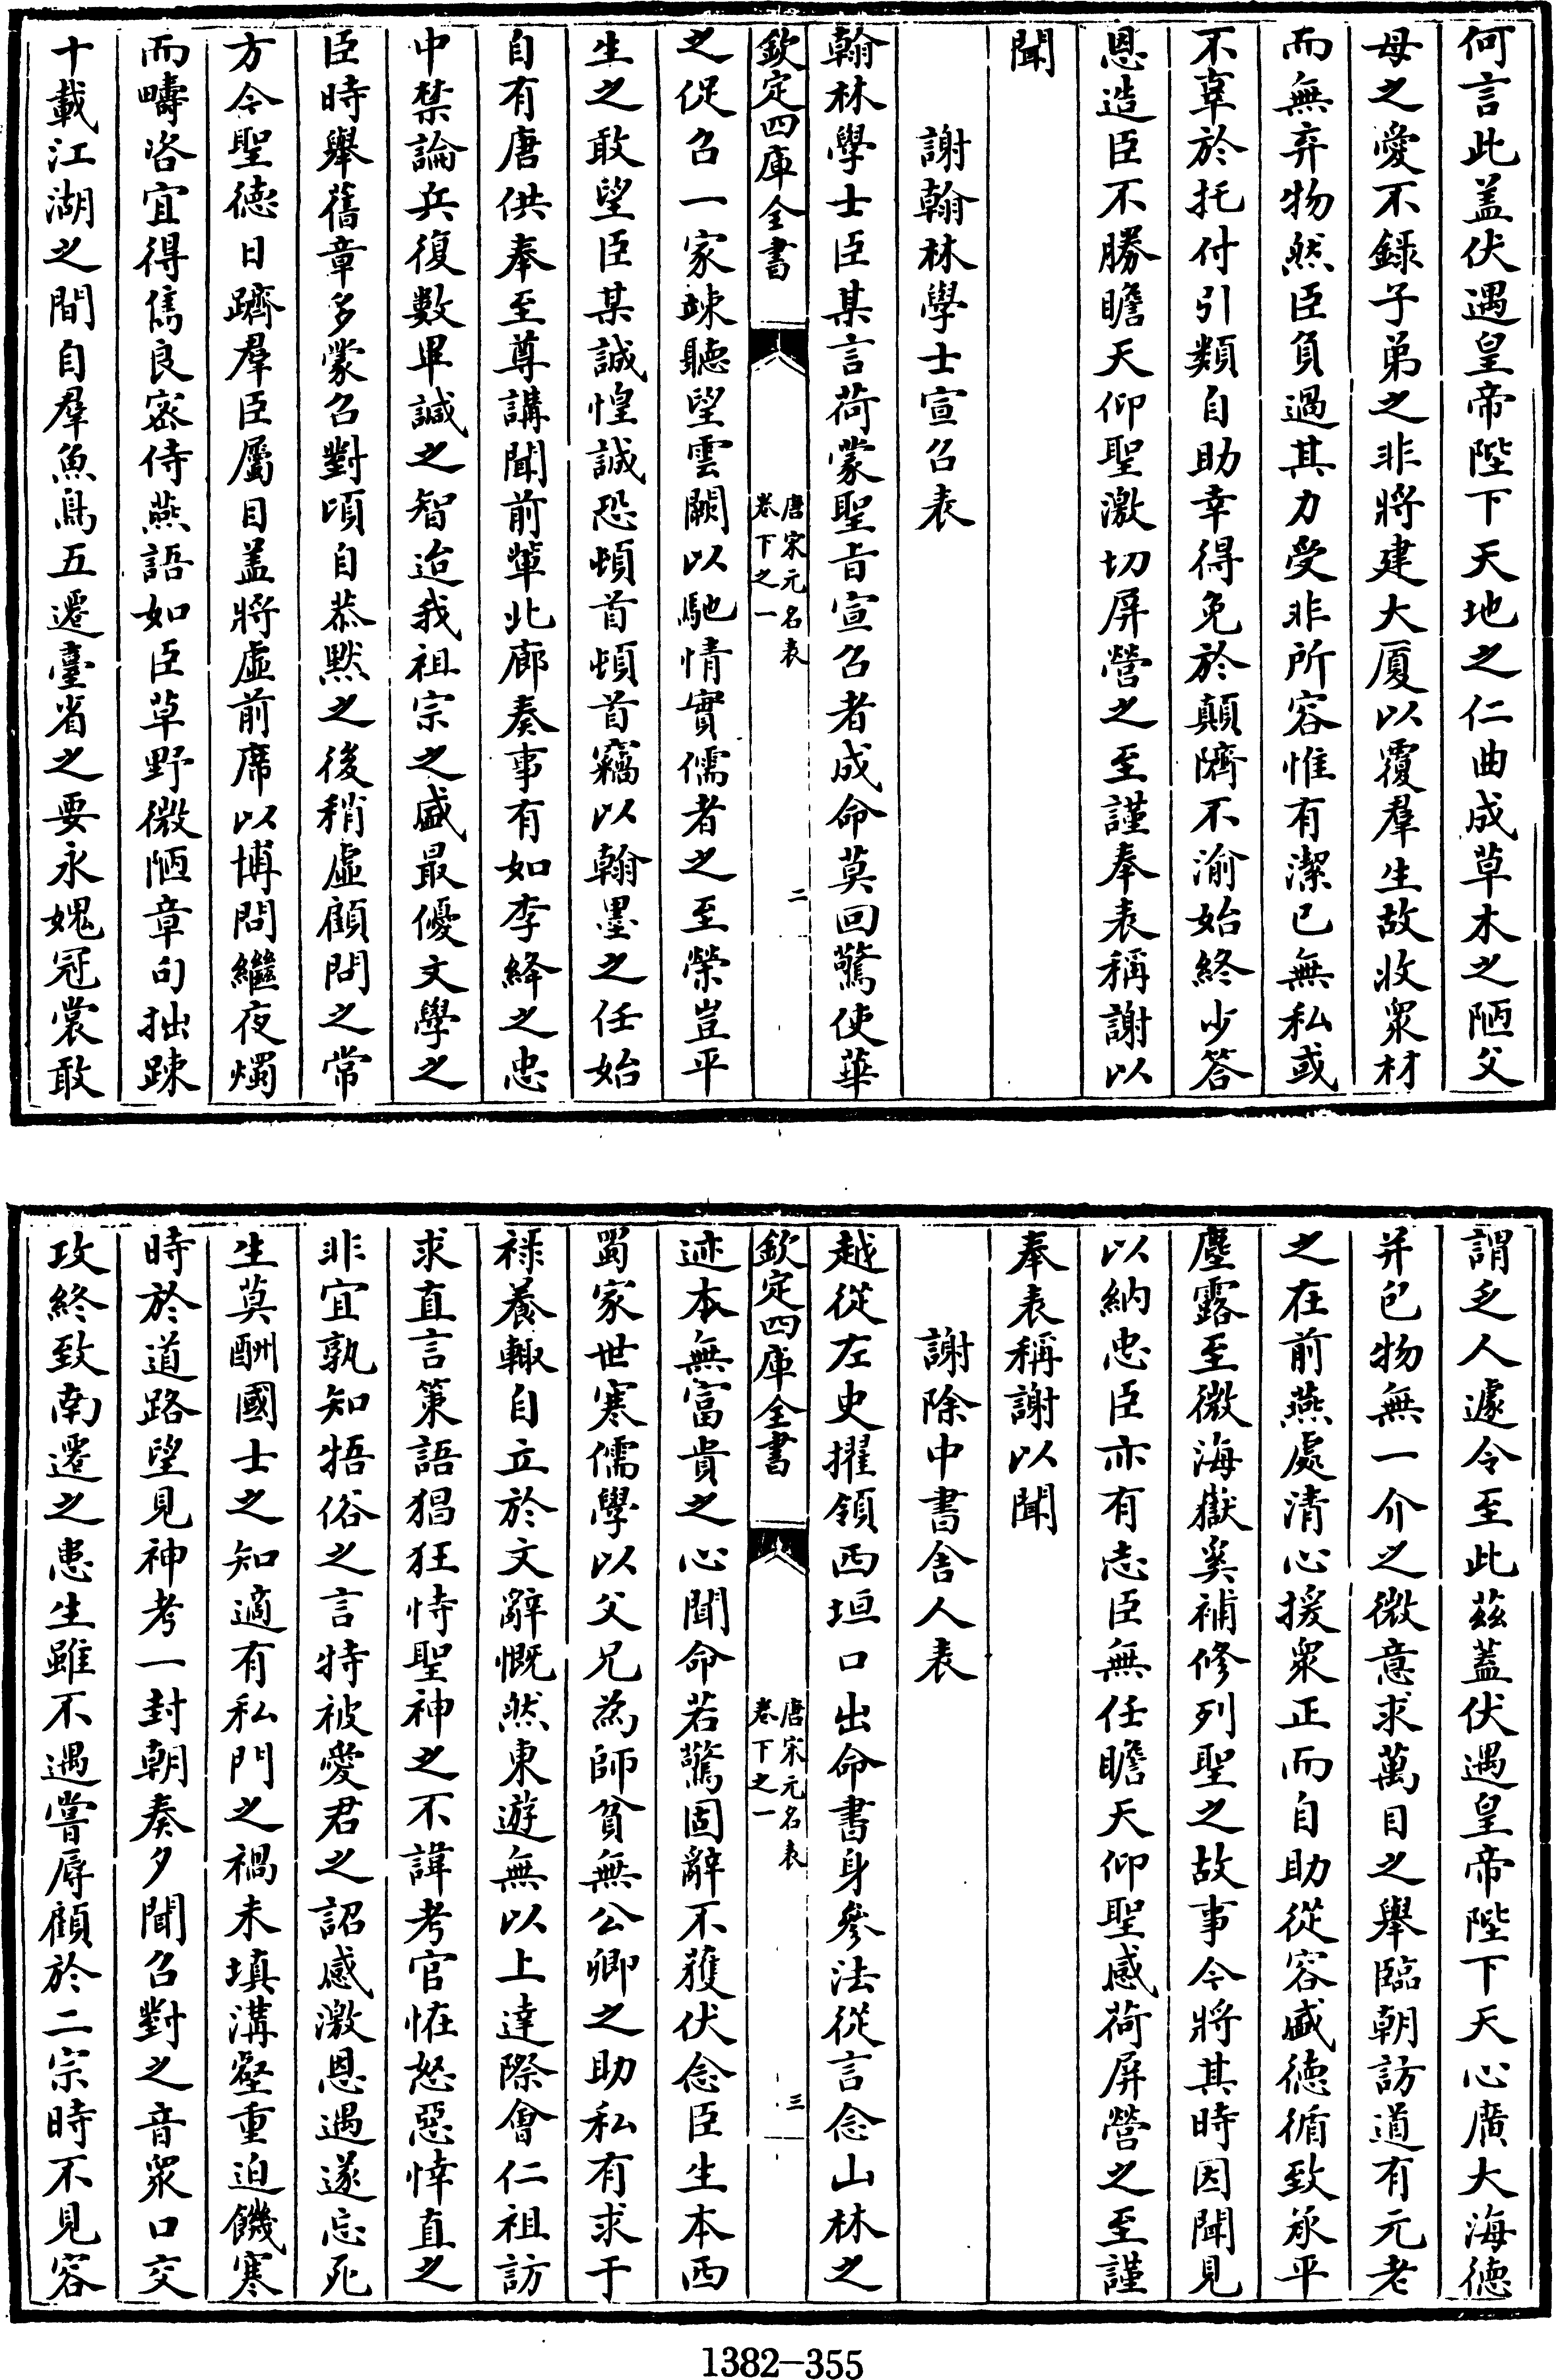 何言此盖伏遇皇帝陛下天地之仁曲成草木之陋父
母之愛不録子弟之非將建大厦以覆羣生故收衆材
而無弃物然臣負過其力受非所容惟有潔已無私或
不辜於托付引類自助幸得免於顛隮不渝始終少答
恩造臣不勝瞻天仰聖激切屏營之至謹奉表稱謝以
聞
謝翰林學士宣召表
翰林學士臣某言荷蒙聖旨宣召者成命莫回驚使華
欽定四庫全書
唐宋元名表
卷下之一
二
之促召一家竦聽望雲闕以馳情實儒者之至榮豈平
生之敢望臣某誠惶誠恐頓首頓首竊以翰墨之任始
自有唐供奉至尊講聞前輩北廊奏事有如李絳之忠
中禁論兵復數畢諴之智迨我祖宗之盛最優文學之
臣時舉舊章多蒙召對頃自恭黙之後稍虛顧問之常
方今聖德日躋羣臣屬目盖將虛前席以博問繼夜燭
而疇咨宜得儁良密侍燕語如臣草野微陋章句拙踈
十載江湖之間自羣魚鳥五遷臺省之要永媿冠裳敢
謂乏人遽令至此茲蓋伏遇皇帝陛下天心廣大海德
并包物無一介之微意求萬目之舉臨朝訪道有元老
之在前燕處清心援衆正而自助從容盛德循致承平
塵露至微海嶽奚補修列聖之故事今將其時因聞見
以納忠臣亦有志臣無任瞻天仰聖感荷屏營之至謹
奉表稱謝以聞
謝除中書舍人表
越從左史擢領西垣口出命書身參法從言念山林之
欽定四庫全書
唐宋元名表
卷下之一
三
迹本無富貴之心聞命若驚固辭不獲伏念臣生本西
蜀家世寒儒學以父兄為師貧無公卿之助私有求于
祿養輙自立於文辭慨然東遊無以上達際會仁祖訪
求直言策語猖狂恃聖神之不諱考官恠怒惡悻直之
非宜孰知牾俗之言特被愛君之詔感激恩遇遂忘死
生莫酬國士之知適有私門之禍未填溝壑重迫饑寒
時於道路望見神考一封朝奏夕聞召對之音衆口交
攻終致南遷之患生雖不遇嘗辱顧於二宗時不見容
1382—355